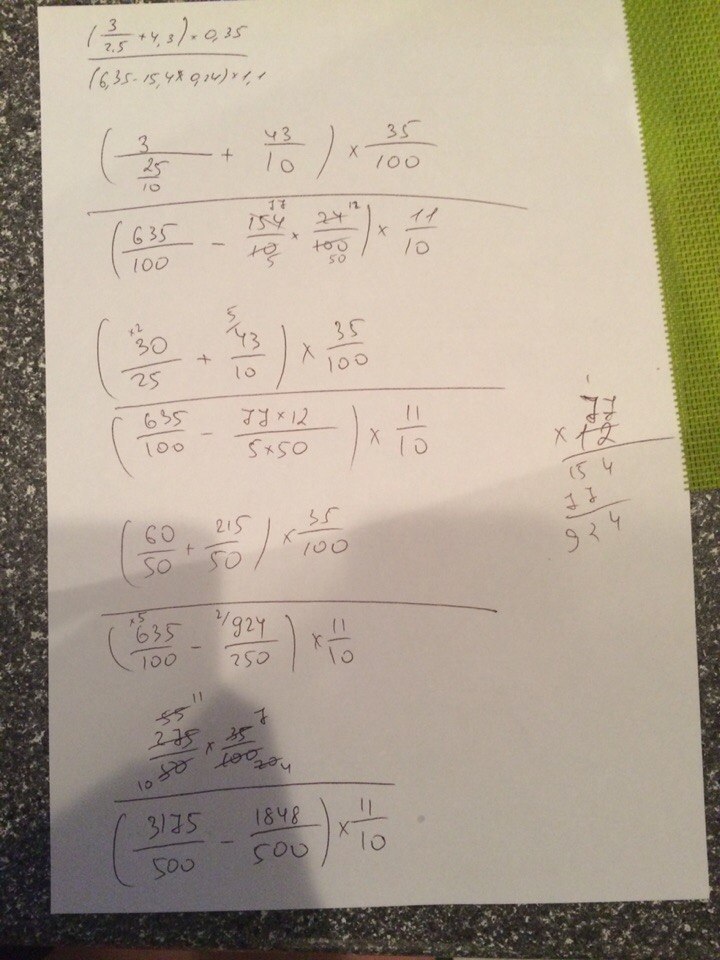 (3/2,5 + 4,3) × 0,35
(6,35 - 15,4 × 0,24) × 1,1
(3/(25/10) + 43/10) × 35/100
(635/100 - 154/10 × 24/100) × 11/10
77 12
5 50
(30/25 + 43/10) × 35/100
×2 5/
(635/100 - 77×12/5×50) × 11/10
77
× 12
154
77
924
(60/50 + 215/50) × 35/100
(635/100 - 924/250) × 11/10
×5 2/
55 11 7
275/50 × 35/100
10 20 4
(3175/500 - 1848/500) × 11/10